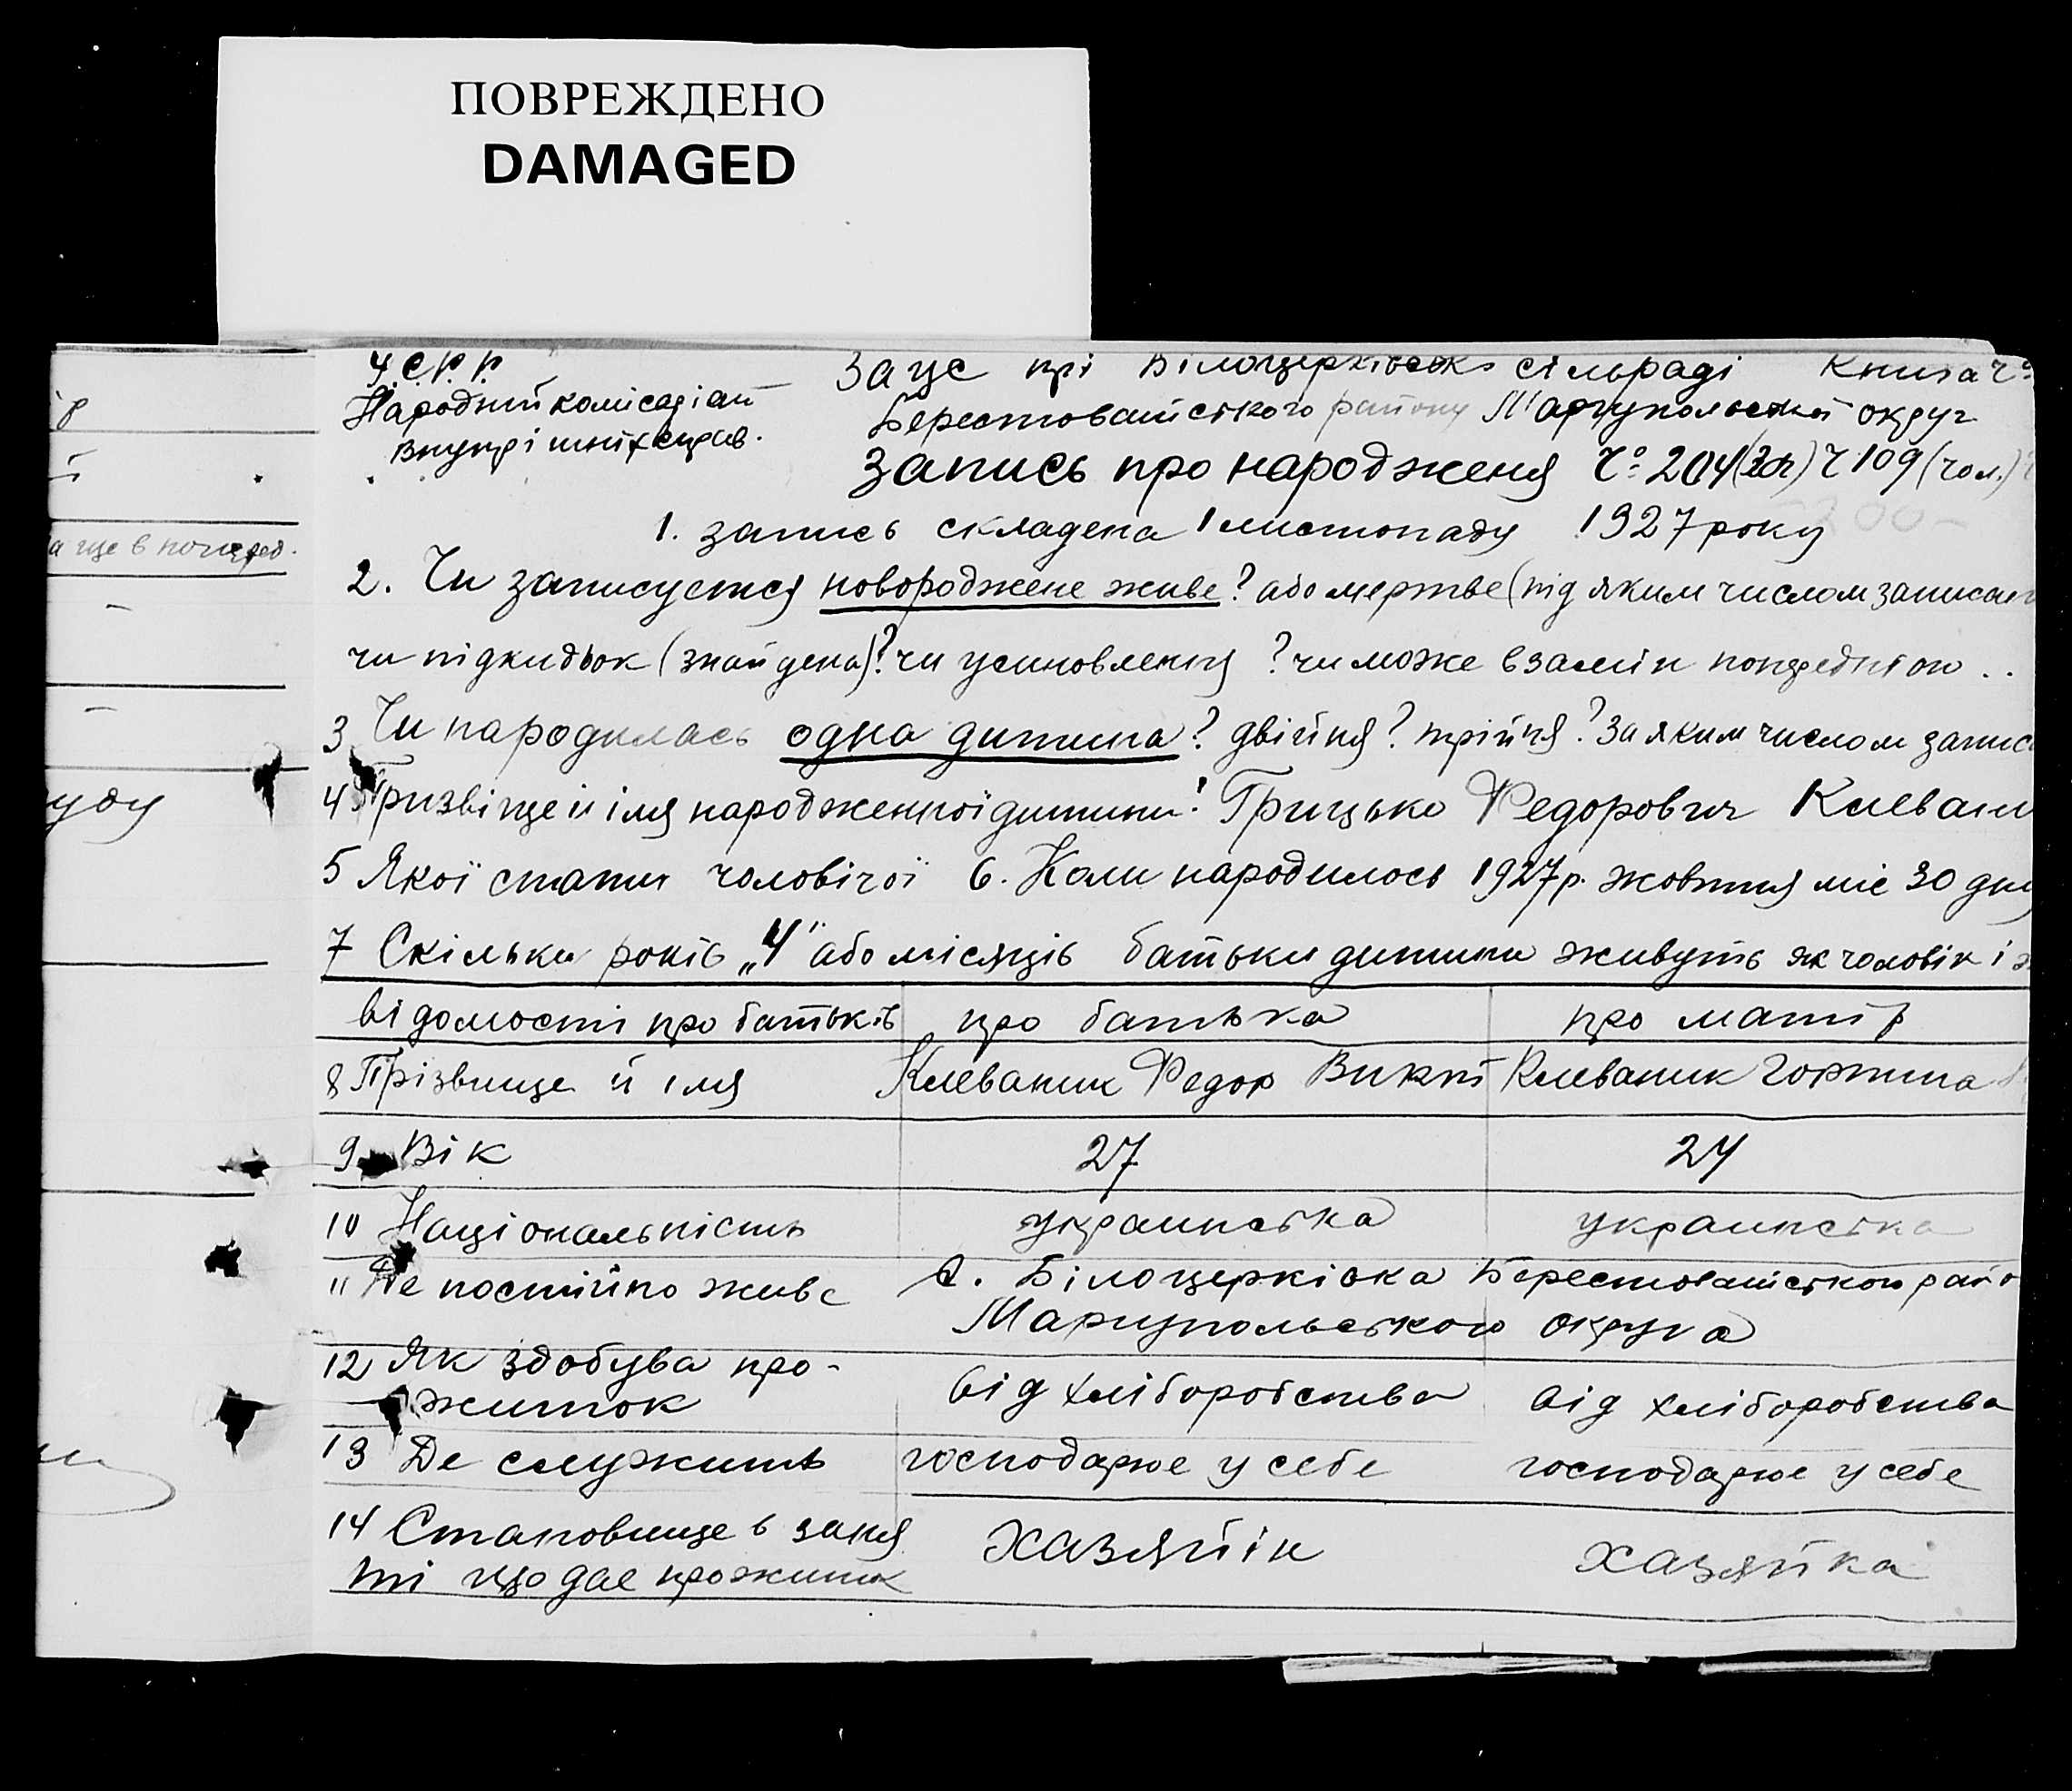 ПОВРЕЖДЕНО
DAMAGED
У.С.Р.Р.
Народний комісаріат
Внутрішніх справ.
Загс прі Білоцерківськ сільраді Книга ч°
Берестоваиського району Маріупольської округ
Запись про народженя ч° 204 ч 109 (чол.)
1. запись складена 1 листопаду 1927 року
2. Чи записуется новороджене живе? або мертве (під яким числом записан
чи підкидьок (знайдена)? чи усиновлення ? чи може взамін попреднього ..
3 Чи народилась одна дитина? двійня? трійня? За яким числом запис
4 Призвіще й імя народженної дитини! Грицько Федорович Клеван
5 Якої стати чоловічої 6. Коли народилось 1927 р. жовтня міс 30 дня
7 Скільки років „4" або місяців батьки дитини живуть як чоловік і ж
відомості про батьків про батька про матір
8 Прізвище й імя Клеваник Федор Викт Клеваник Горпина
9 Вік 27 24
10 Національність украинська украинська
11 Де постійно живе с. Білоцерківка Берестоваиського райо
Мариупольського округа
12 Як здобува про-
житок від хліборобства від хліборобства
13 Де служить господарює у себе господарює у себе
14 Становище в заня
ті що дає прожиток хазяйін хазяйка
а ще в попред.